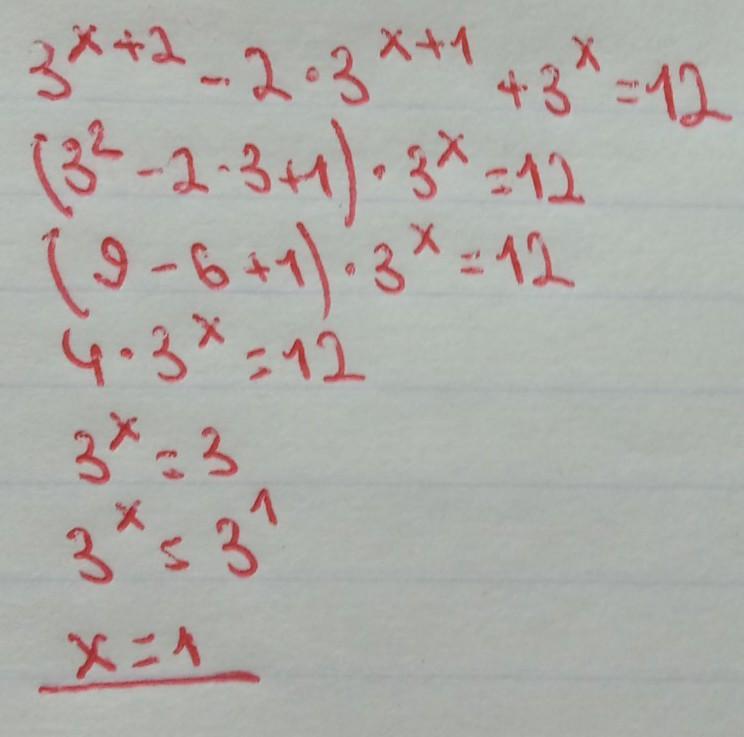 3^{x+2} - 2 · 3^{x+1} + 3^x = 12
(3^2 - 2 · 3 + 1) · 3^x = 12
(9 - 6 + 1) · 3^x = 12
4 · 3^x = 12
3^x = 3
3^x = 3^1
x = 1